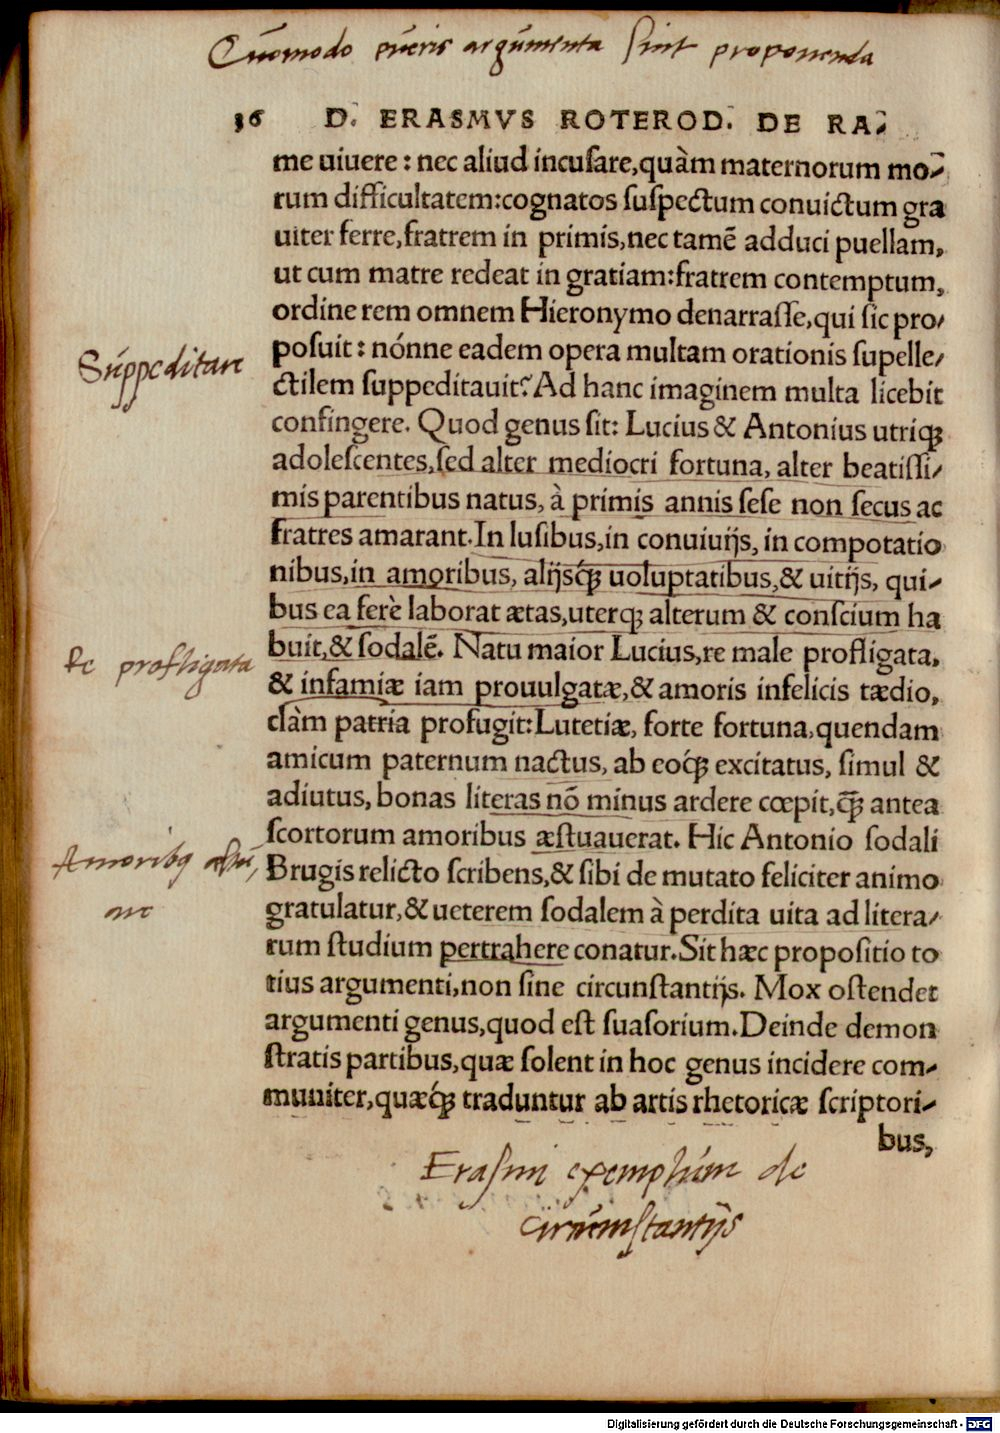 Quomodo pueris argumenta sint proponenda
36 D. ERASMVS ROTEROD. DE RA⸗
me uiuere : nec aliud incusare, quàm maternorum mo⸗
rum difficultatem: cognatos suspectum conuictum gra
uiter ferre, fratrem in primis, nec tamẽ adduci puellam,
ut cum matre redeat in gratiam: fratrem contemptum,
ordine rem omnem Hieronymo denarrasse, qui sic pro⸗
posuit : nónne eadem opera multam orationis supelle⸗
Suppeditare
ctilem suppeditauit? Ad hanc imaginem multa licebit
confingere. Quod genus sit: Lucius & Antonius utriqꝫ
adolescentes, sed alter mediocri fortuna, alter beatissi⸗
mis parentibus natus, à primis annis sese non secus ac
fratres amarant. In lusibus, in conuiuijs, in compotatio
nibus, in amoribus, alijsq́ꝫ uoluptatibus, & uitijs, qui⸗
bus ea ferè laborat ætas, uterqꝫ alterum & conscium ha
buit, & sodalẽ. Natu maior Lucius, re male profligata,
Re profligata
& infamiæ iam prouulgatæ, & amoris infelicis tædio,
clàm patria profugit: Lutetiæ, forte fortuna, quendam
amicum paternum nactus, ab eoq́ꝫ excitatus, simul &
adiutus, bonas literas nõ minus ardere cœpit, q̃ꝫ antea
scortorum amoribus æstuauerat. Hic Antonio sodali
Amoribq æstu,
are
Brugis relicto scribens, & sibi de mutato feliciter animo
gratulatur, & ueterem sodalem à perdita uita ad litera⸗
rum studium pertrahere conatur. Sit hæc propositio to
tius argumenti, non sine circunstantijs. Mox ostendet
argumenti genus, quod est suasorium. Deinde demon
stratis partibus, quæ solent in hoc genus incidere com⸗
muniter, quæq́ꝫ traduntur ab artis rhetoricæ scriptori⸗
bus,
Erasmi exemplum de
circumstantijs
Digitalisierung gefördert durch die Deutsche Forschungsgemeinschaft - DFG